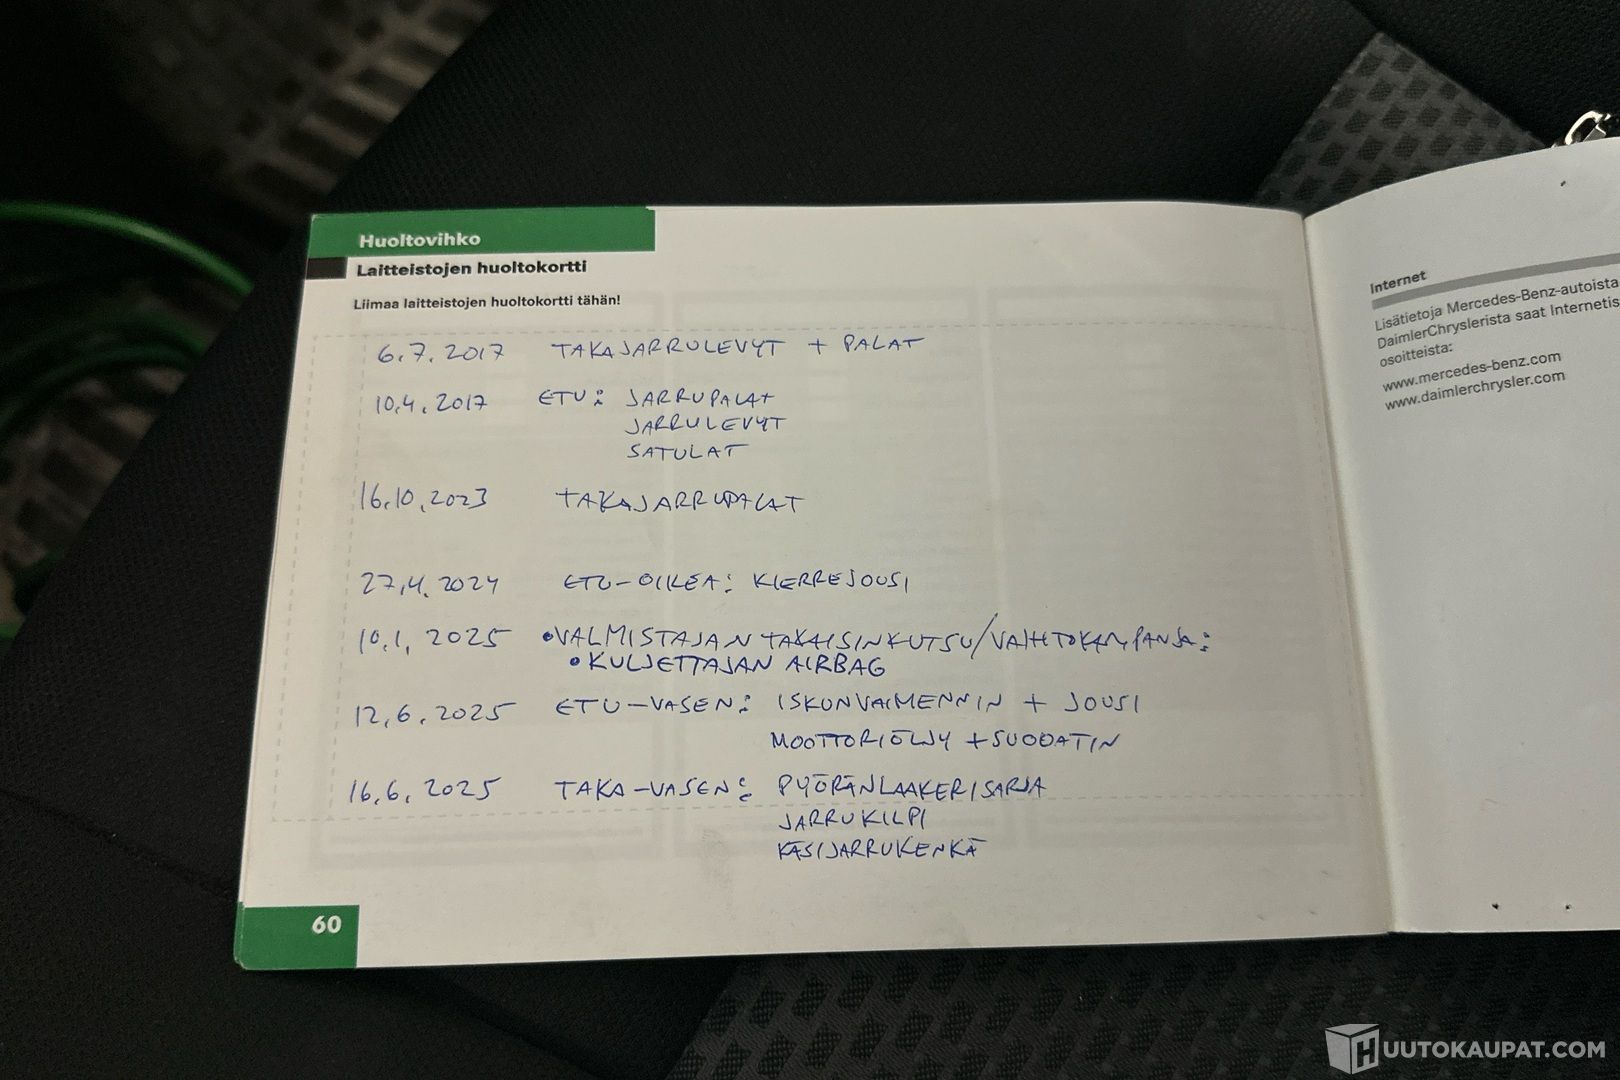 Huoltovihko
Laitteistojen huoltokortti
Liimaa laitteistojen huoltokortti tähän!
6.7.2017 TAKAJARRULEVYT + PALAT
10.4.2017 ETU: JARRUPALAT
JARRULEVYT
SATULAT
16.10.2023 TAKAJARRUPALAT
27.4.2024 ETU-OIKEA: KIERREJOUSI
10.1.2025 •VALMISTAJAN TAKAISINKUTSU/VAIHTOKAMPANJA:
•KULJETTAJAN AIRBAG
12.6.2025 ETU-VASEN: ISKUNVAIMENNIN + JOUSI
MOOTTORIÖLJY + SUODATIN
16.6.2025 TAKA-VASEN: PYÖRÄNLAAKERISARJA
JARRUKILPI
KÄSIJARRUKENKÄ
60
Internet
Lisätietoja Mercedes-Benz-autoista
DaimlerChryslerista saat Internetis
osoitteista:
www.mercedes-benz.com
www.daimlerchrysler.com
HUUTOKAUPAT.COM